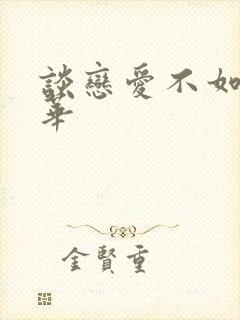 談戀愛不如
華
金賢重